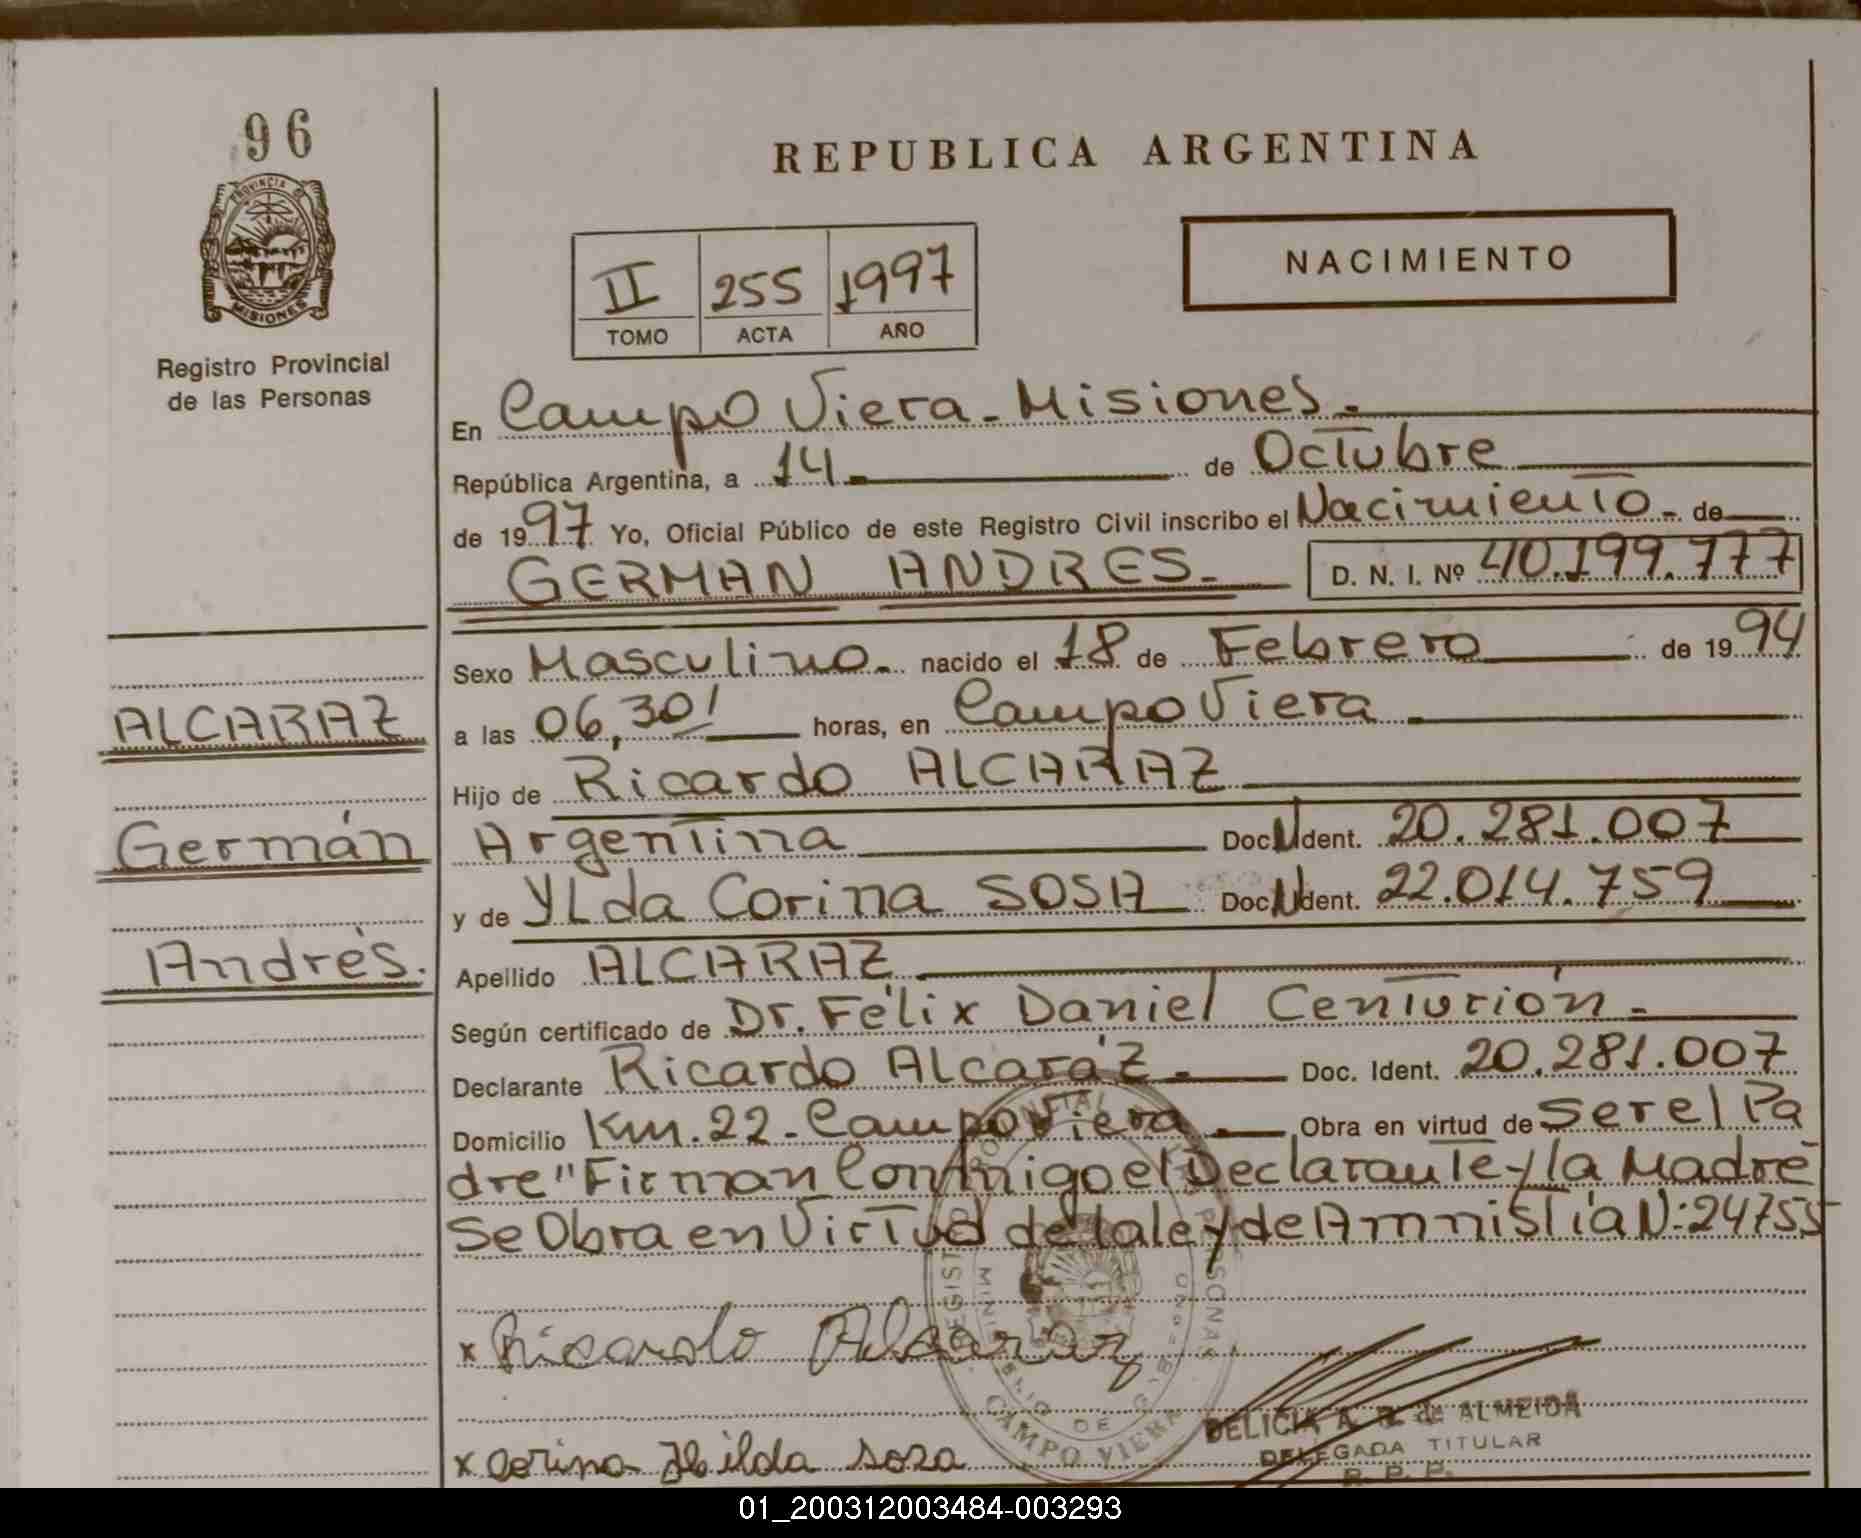 96
PROVINCIA DE
MISIONES
Registro Provincial
de las Personas
REPUBLICA ARGENTINA
II 255 1997
TOMO ACTA AÑO
NACIMIENTO
En Campo Viera - Misiones.
República Argentina, a 14 de Octubre
de 1997 Yo, Oficial Público de este Registro Civil inscribo el Nacimiento - de
GERMAN ANDRES. D. N. I. Nº 40.199.777
Sexo Masculino. nacido el 18 de Febrero de 1994
ALCARAZ
a las 06,30' horas, en Campo Viera
Hijo de Ricardo ALCARAZ
Germán
Argentina Doc. N Ident. 20.281.007
y de YLda Corina SOSA Doc. N Ident. 22.014.759
Andrés.
Apellido ALCARAZ
Según certificado de Dr. Félix Daniel Centurión.
Declarante Ricardo Alcaráz. Doc. Ident. 20.281.007
Domicilio Km. 22 - Campo Viera. Obra en virtud de Ser el Pa
dre" Firman Conmigo el Declarante y la Madre
Se Obra en Virtud de la ley de Amnistía N: 24755
x Ricardo Alcaraz
CAMPO VIERA
DELICIA A. R. de ALMEIDA
DELEGADA TITULAR
R. P. P.
x Corina Ilda sosa
01_200312003484-003293